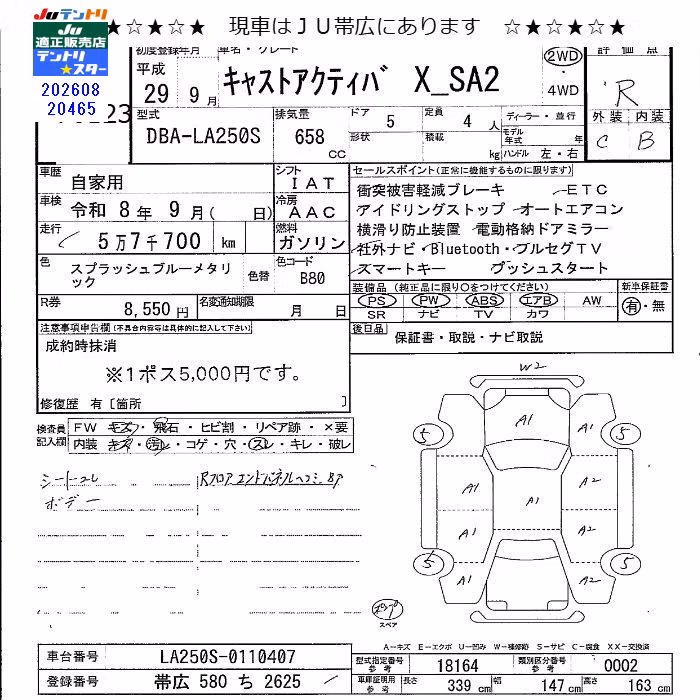 Juテントリ
JU
適正販売店
テントリ
★スター
★☆★☆★ 現車はJU帯広にあります ☆★☆★☆★
202608
20465
初度登録年月
平成
29 9月
車名・グレード
キャストアクティバ X_SA2
2WD
4WD
評価点
R
外装 内装
C B
型式
DBA-LA250S
排気量
658
CC
ドア
5
形状
定員
4 人
積載
kg
ディーラー・並行
モデル年式 年
ハンドル 左・右
車歴
自家用
シフト
IAT
車検
令和 8年 9月( 日)
冷房
AAC
走行
5万7千700 km
燃料
ガソリン
色
スプラッシュブルーメタリック
色替
色コード
B80
R券
8,550円
名変通知期限
月 日
セールスポイント(正常に機能するものに限ります)
衝突被害軽減ブレーキ ETC
アイドリングストップ オートエアコン
横滑り防止装置 電動格納ドアミラー
社外ナビ・Bluetooth・フルセグTV
スマートキー プッシュスタート
装備品 (純正品に限り○をつけてください)
PS PW ABS エアB AW
SR ナビ TV カワ
新車保証書
有・無
後日品
保証書・取説・ナビ取説
注意事項申告欄(不具合内容等は具体的に記入して下さい)
成約時抹消
※1ポス5,000円です。
修復歴 有〔箇所 〕
検査員
記入欄
FW キズ・飛石・ヒビ割・リペア跡・×要
内装 キズ・汚レ・コゲ・穴・スレ・キレ・破レ
シートコレ
ボデー
RフロアエンドパネルヘコミBP
W2
A1
5 5
A1 A2
A1
A1 A2
5 5
A1 A2
スペア
A-キズ E-エクボ U-凹み W-補修跡 S-サビ C-腐食 XX-交換済
車台番号
LA250S-0110407
登録番号
帯広 580 ち 2625
型式指定番号
参考
18164
類別区分番号
参考
0002
車庫証明用
参考
長さ 339 cm 幅 147 cm 高さ 163 cm